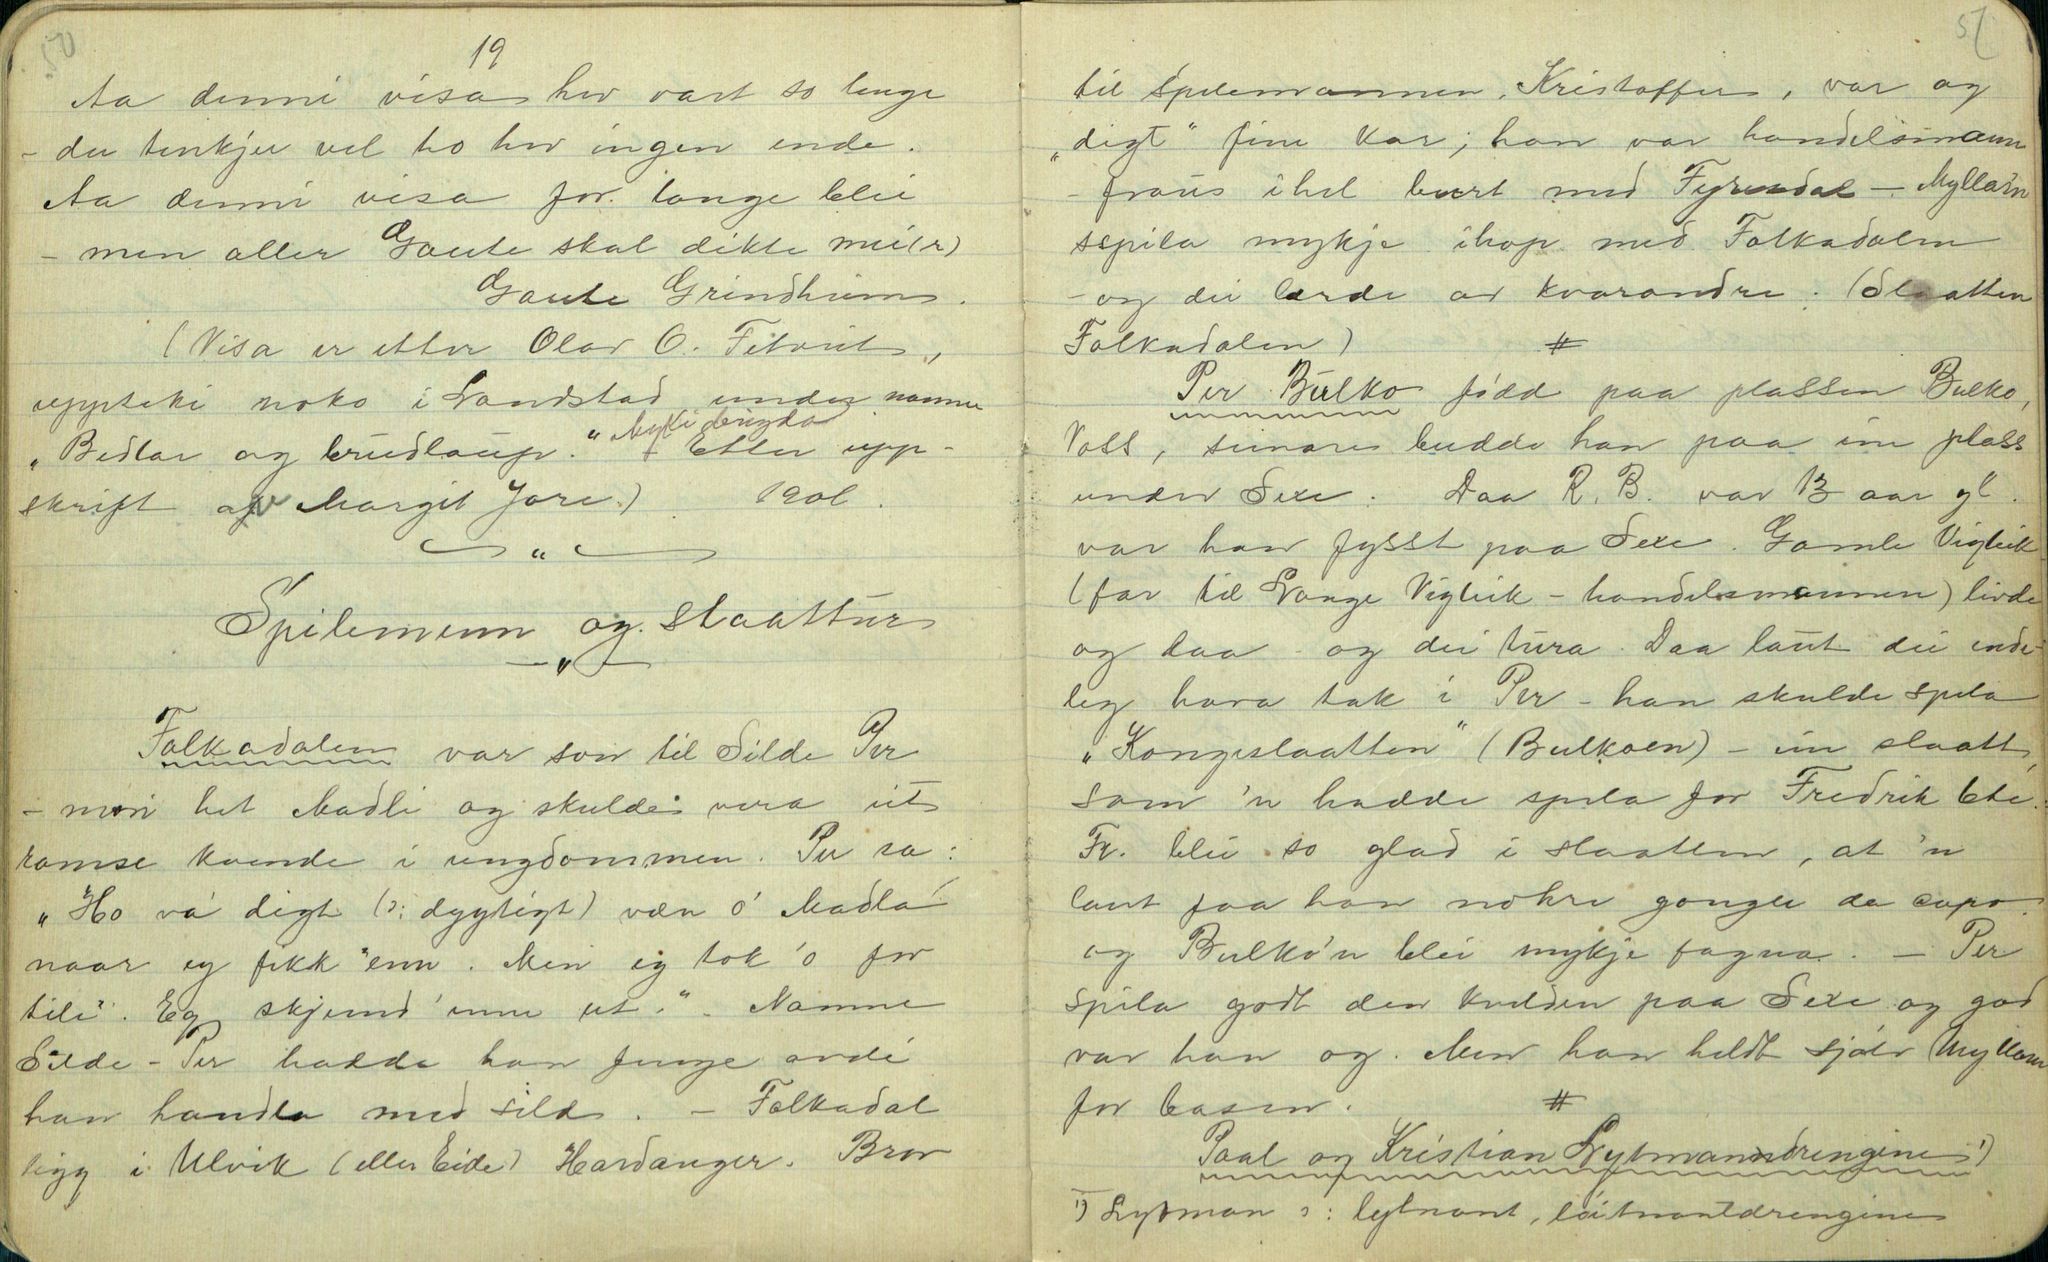 50
19
Aa denni visa hev vart so lenge
- du tenkjer vel ho hev ingen ende.
Aa denni visa for lange blei
- men aller Gaute skal dikte mei(r)
Gaute Grindheim.
(Visa er etter Olav O. Fitveit,
uppteki noko i Landstad under namne
„Bedlar og brudlaup." Myki brigda Etter upp-
skrift av Margit Jore.) 1901.
„
Spilemenn og slaattur
„
Falkadalen var son til Silde Per
- mori het Madli og skulde vera ut
ramse kvende i ungdommen. Per sa:
„Ho va' digt (ɔ: dygtigt) væn o' Madla
naar eg fekk 'enn. Men eg tok 'o for
tile'. Eg skjemd 'enne ut." Namne
Silde-Per hadde han fenge avdi
han handla med sild. - Falkadal
ligg i Ulvik (eller Eide) Hardanger. Bror
51
til spelemannen, Kristoffer, var og
„digt" fine kar; han var handelsmann
- fraus ihel burt med Fyresdal - Myllarn
spila mykje ihop med Falkadalen
- og dei lærde av kvarandre. (Slaatten
Falkadalen) #
Per Bulko fødd paa plassen Bulko,
Voss, seinare budde han paa ein plass
under Sexe. Daa R. B. var 13 aar gl.
var han fysst paa Sexe. Gamle Vigleik
(far til Lange Vigleik - handelsmannen) livde
og daa - og dei tura. Daa laut dei ende-
leg hava tak i Per - han skulde spela
„Kongeslaatten" (Bulkoen) - ein slaatt
som 'n hadde spela for Fredrik 6te.
Fr. blei so glad i slaatten, at 'n
laut faa han nokre gonger da capo
og Bulko'n blei mykje fagna. - Per
spila godt den kvelden paa Sexe og god
var han og. Men han heldt sjølv Myllarn
for basen. #
Paal og Kristian Lytmanndrengine ¹)
¹) Lytman ɔ: lytnant, løitnantdrengine